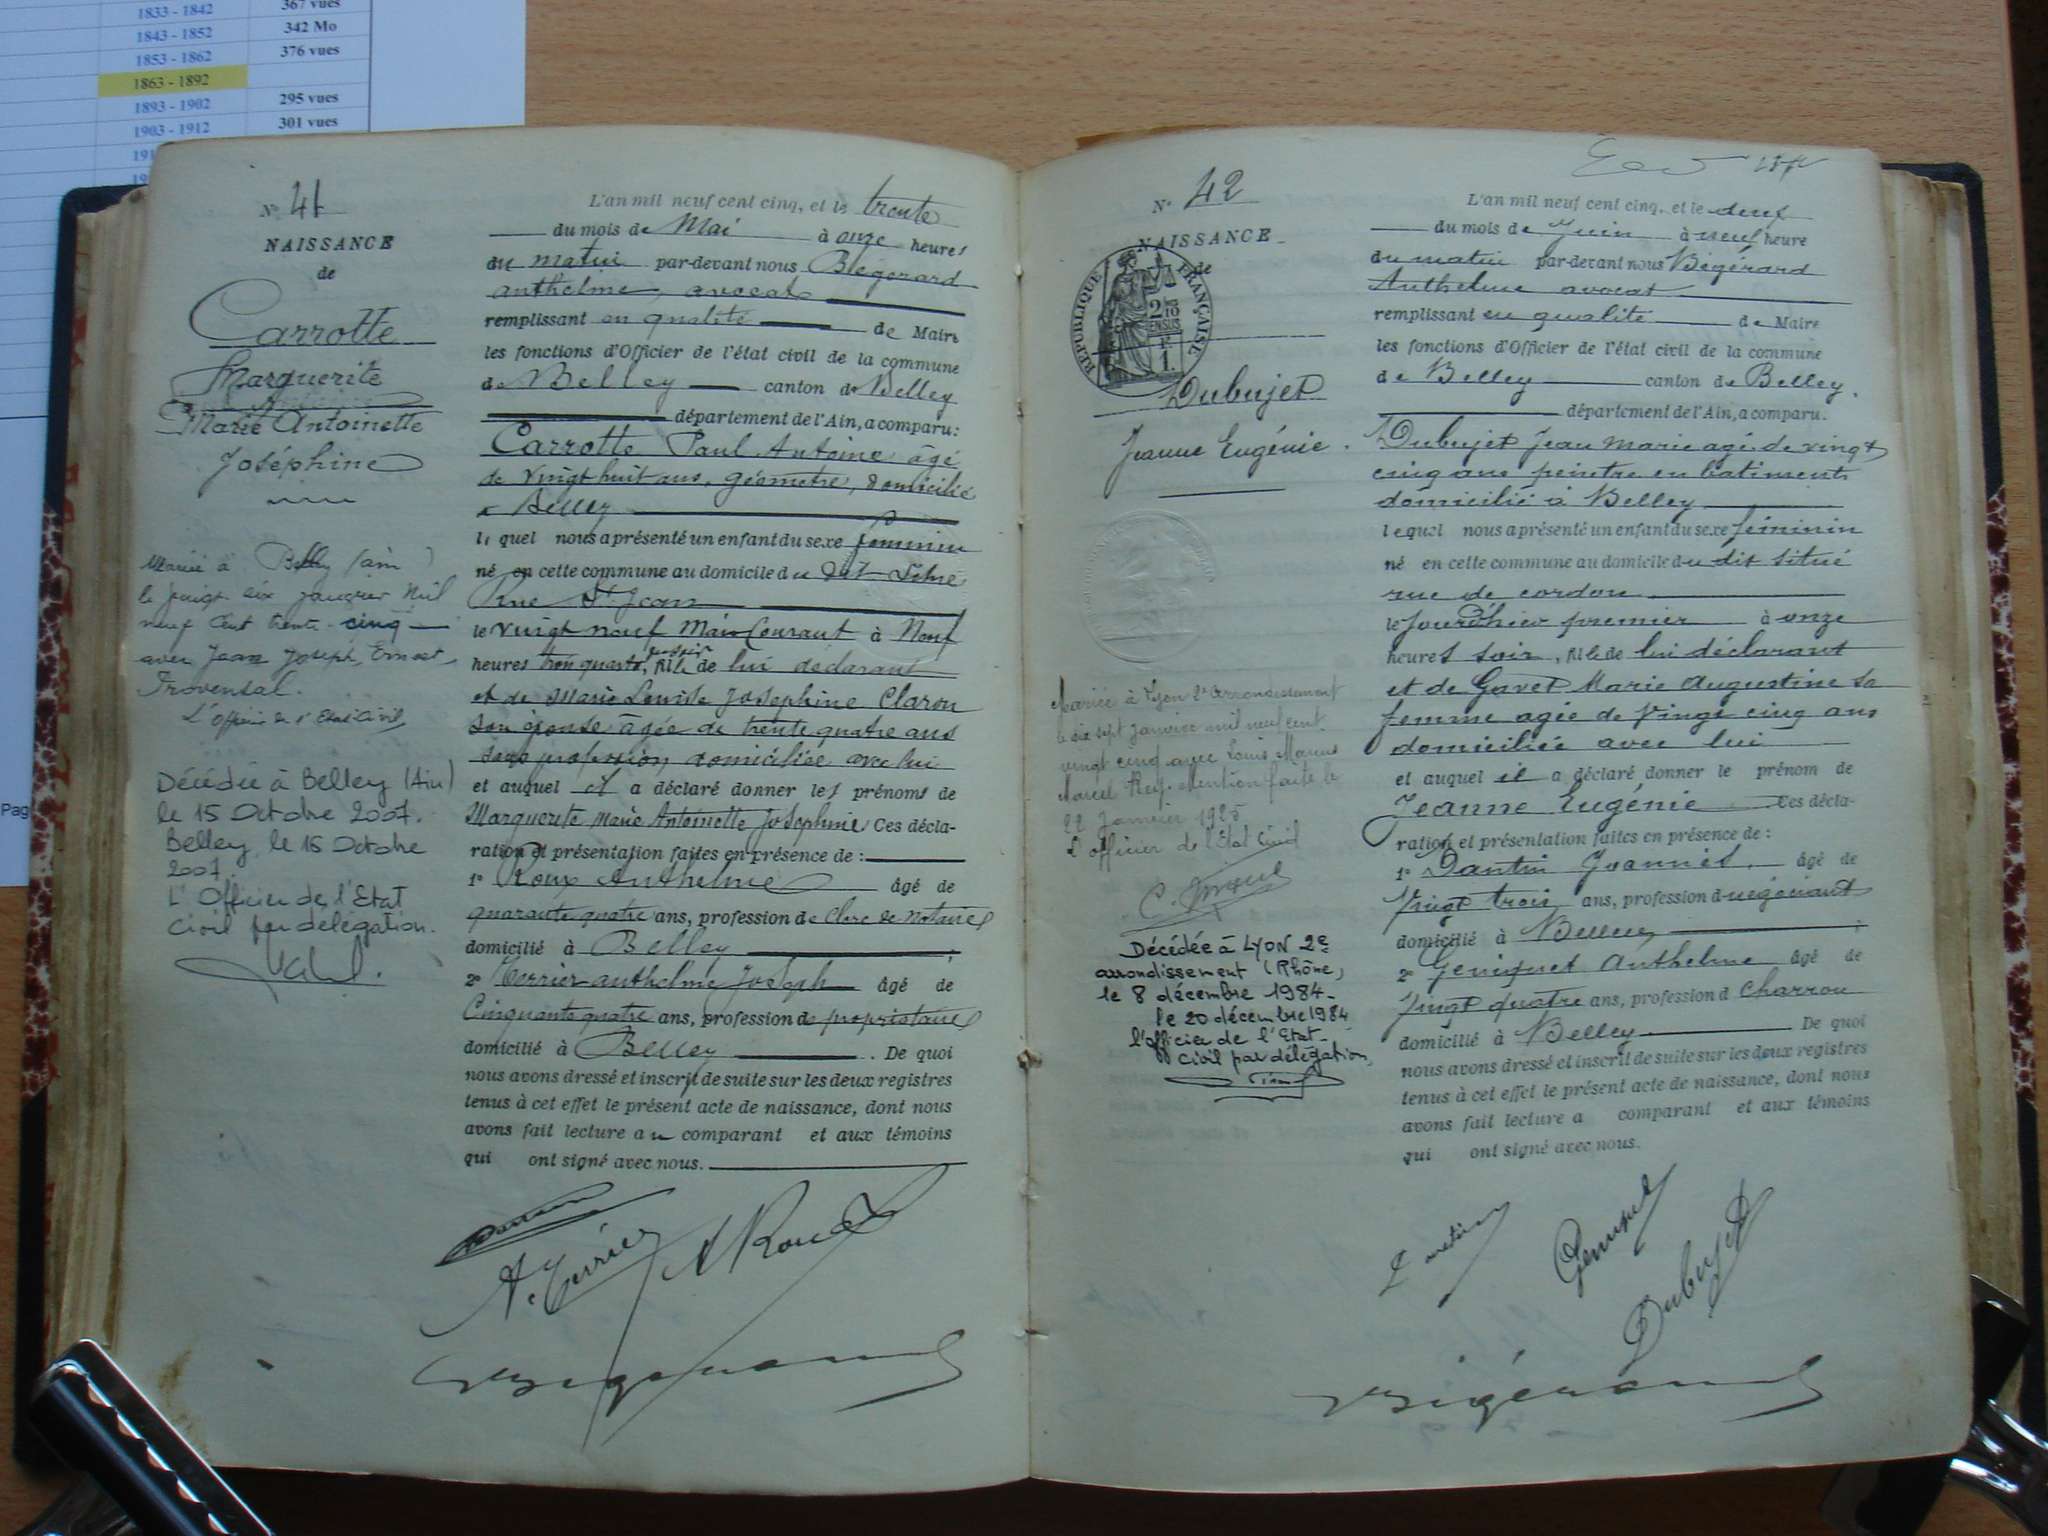 1833 - 1842 367 vues
1843 - 1852 342 Mo
1853 - 1862 376 vues
1863 - 1892
1893 - 1902 295 vues
1903 - 1912 301 vues
Pag
N° 41
NAISSANCE
de
Carrotte
Marguerite
Marie Antoinette
Joséphine
Mariée à Belley (ain)
le vingt six janvier Mil
neuf Cent trente-cinq
avec Jean Joseph Ernest
Provensal.
L'officier de l'Etat Civil,
Décédée à Belley (Ain)
le 15 Octobre 2007.
Belley, le 16 Octobre
2007.
L'Officier de l'Etat
Civil par délégation.
L'an mil neuf cent cinq, et le trente
du mois de Mai à onze heures
du matin par-devant nous Bégérard
anthelme, avocat
remplissant en qualité de Maire
les fonctions d'Officier de l'état civil de la commune
de Belley canton de Belley
département de l'Ain, a comparu:
Carrotte Paul Antoine âgé
de vingt huit ans, géomètre, domicilié
à Belley
le quel nous a présenté un enfant du sexe féminin
né en cette commune au domicile du dit
rue St Jean
le vingt neuf Mai Courant à Neuf
heures trois quarts, du soir, fille de lui déclarant
et de Marie Louise Josephine Claron
son épouse âgée de trente quatre ans
sans profession domiciliée avec lui
et auquel il a déclaré donner les prénoms de
Marguerite Marie Antoinette Joséphine Ces décla-
ration et présentation faites en présence de :
1° Roux Anthelme âgé de
quarante quatre ans, profession de Clerc de notaire
domicilié à Belley
2° Terrier anthelme Joseph âgé de
Cinquante quatre ans, profession de propriétaire
domicilié à Belley. De quoi
nous avons dressé et inscrit de suite sur les deux registres
tenus à cet effet le présent acte de naissance, dont nous
avons fait lecture au comparant et aux témoins
qui ont signé avec nous.
A. Terrier A Roux
Bégérard
N° 42
NAISSANCE
de
REPUBLIQUE FRANÇAISE
2/10
EN SUS
1F
Dubujet
Jeanne Eugénie.
Mariée à Lyon 2e arrondissement
le dix sept janvier mil neuf cent
vingt cinq avec Louis Marius
Marcel Rey. Mention faite le
22 janvier 1925
L'officier de l'Etat Civil
Décédée à LYON 2e
arrondissement (Rhône)
le 8 décembre 1984-
le 20 décembre 1984
l'officier de l'Etat-
Civil par délégation,
L'an mil neuf cent cinq, et le deux
du mois de Juin à neuf heure
du matin par-devant nous Bégérard
Anthelme avocat
remplissant en qualité de Maire
les fonctions d'Officier de l'état civil de la commune
de Belley canton de Belley.
département de l'Ain, a comparu.
Dubujet Jean Marie agé de vingt
cinq ans peintre en batiments
domicilié à Belley
lequel nous a présenté un enfant du sexe féminin
né en cette commune au domicile du dit situé
rue de cordon
le jour d'hier premier à onze
heures soir, fille de lui déclarant
et de Gavet Marie Augustine sa
femme agée de vingt cinq ans
domiciliée avec lui
et auquel il a déclaré donner le prénom de
Jeanne Eugénie Ces décla-
ration et présentation faites en présence de :
1° Dantin Joannès, âgé de
Vingt trois ans, profession de négociant
domicilié à Belley ;
2° Geniquet Anthelme âgé de
Vingt quatre ans, profession d Charron
domicilié à Belley De quoi
nous avons dressé et inscrit de suite sur les deux registres
tenus à cet effet le présent acte de naissance, dont nous
avons fait lecture a comparant et aux témoins
qui ont signé avec nous.
Dantin Geniquet
Dubujet
Bégérard